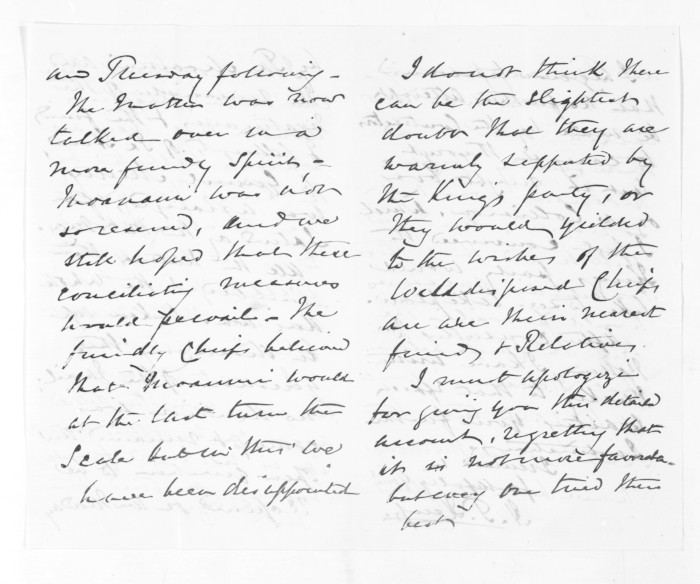 and Thursday following -
The matter was now
talked over in a
more friendly spirit -
Moananui was not
so reserved, and we
still hoped that these
conciliatory measures
would prevail - The
friendly Chiefs believed
that Moananui would
at the last turn the
Scale but in this we
have been disappointed
I do not think there
can be the slightest
doubt that they are
warmly supported by
the King's party, or
they would yielded
to the wishes of the
well disposed Chiefs
are their nearest
friends & Relatives.
I must apologize
for giving you this detailed
account, regretting that
it is not more favora-
but every one tried their
best